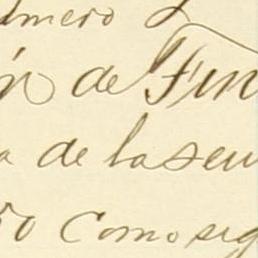 úmero 2
ón de Fin
a de la seu
50 Como sig